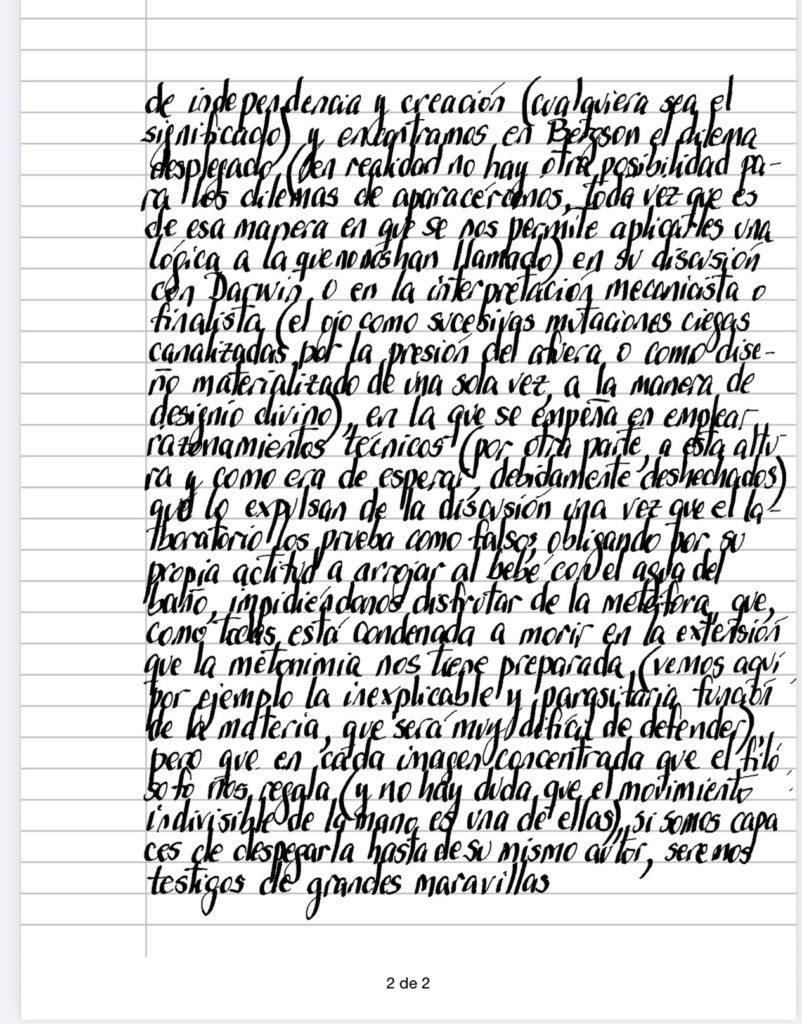 de independencia y creación (cualquiera sea el
significado) y encontramos en Bergson el dilema
desplegado (en realidad no hay otra posibilidad pa-
ra los dilemas de aparacérsenos, toda vez que es
de esa manera en que se nos permite aplicarles una
lógica a la que no nos han llamado) en su discusión
con Darwin, o en la interpretación mecanicista o
finalista (el ojo como sucesivas mutaciones ciegas
canalizadas por la presión del afuera o como dise-
ño materializado de una sola vez, a la manera de
designio divino), en la que se empeña en emplear
razonamientos técnicos (por otra parte, a esta altu
ra y como era de esperar, debidamente deshechados)
que lo expulsan de la discusión una vez que el la-
boratorio los prueba como falsos, obligando por su
propia actitud a arrojar al bebé con el agua del
baño, impidiéndonos disfrutar de la metáfora, que,
como todas, está condenada a morir en la extensión
que la metonimia nos tiene preparada, (vemos aquí
por ejemplo la inexplicable y parasitaria función
de la materia, que será muy difícil de defender)
pero que en cada imagen concentrada que el filó
sofo nos regala (y no hay duda que el movimiento
indivisible de la mano es una de ellas), si somos capa
ces de despegarla hasta de su mismo autor, seremos
testigos de grandes maravillas
2 de 2